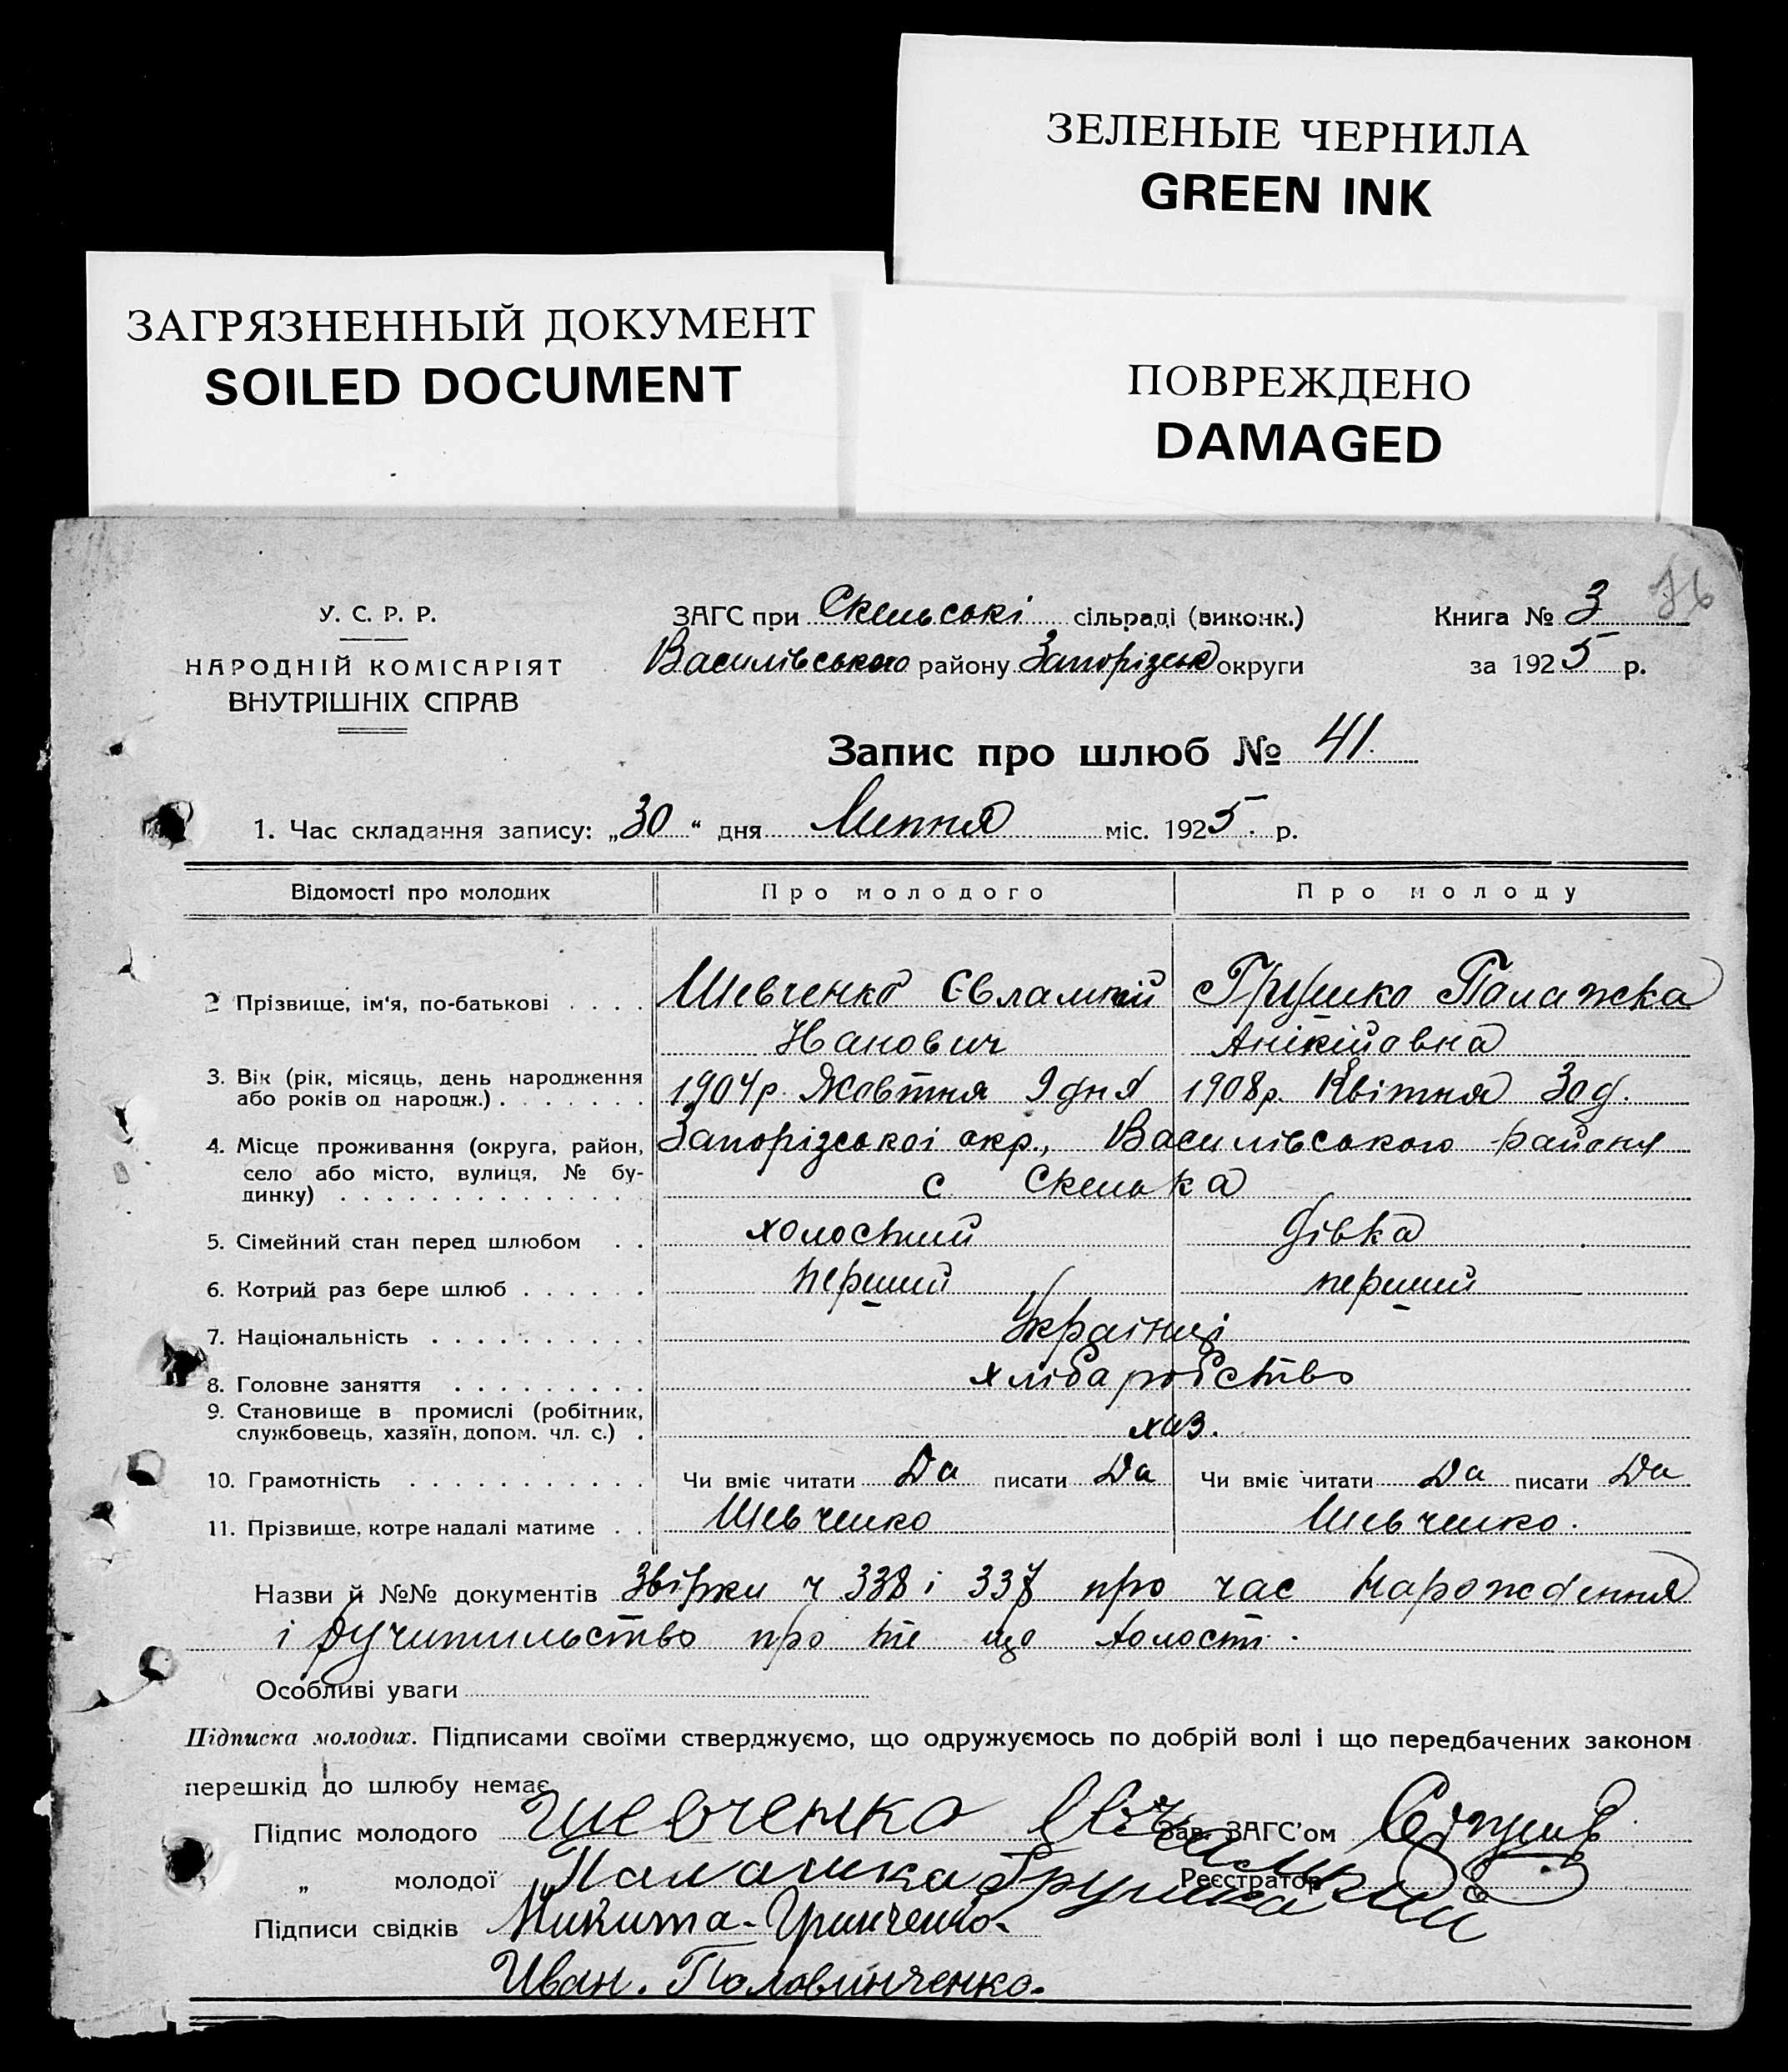 ЗЕЛЕНЫЕ ЧЕРНИЛА
GREEN INK
ЗАГРЯЗНЕННЫЙ ДОКУМЕНТ
SOILED DOCUMENT
ПОВРЕЖДЕНО
DAMAGED
У. С. Р. Р.
НАРОДНІЙ КОМІСАРІЯТ
ВНУТРІШНІХ СПРАВ
ЗАГС при Скельські сільраді (виконк.)
Василівського району Запорізськ округи
Книга № 3
за 1925 р.
Запис про шлюб № 41.
1. Час складання запису: „30“ дня Липня міс. 1925. р.
Відомості про молодих Про молодого Про молоду
2 Прізвище, ім'я, по-батькові . . . . Шевченко Євлампій Грушко Палажка
Іванович Анікійовна
3. Вік (рік, місяць, день народження або років од народж.) . . . . . . . 1904р. Жовтня 9 дня 1908р. Квітня 30 д.
4. Місце проживання (округа, район, село або місто, вулиця, № будинку) . . . . . . . . . . . . . Запорізської окр., Василівського району
с Скелька
5. Сімейний стан перед шлюбом . . холостий дівка
6. Котрий раз бере шлюб . . . . . . перший перший
7. Національність . . . . . . . . . . Українці
8. Головне заняття . . . . . . . . . хліборобство
9. Становище в промислі (робітник, службовець, хазяїн, допом. чл. с.) . хаз.
10. Грамотність . . . . . . . . . . . Чи вміє читати Да писати Да Чи вміє читати Да писати Да
11. Прізвище, котре надалі матиме . . Шевченко Шевченко.
Назви й №№ документів Звірки ч 338 і 337 про час народження
і ручительство про те що холості.
Особливі уваги
Підписка молодих. Підписами своїми стверджуємо, що одружуємось по добрій волі і що передбачених законом
перешкід до шлюбу немає
Підпис молодого Шевченко Евлампий Зав. ЗАГС'ом
„ молодої Палашка Грушка Реєстратор
Підписи свідків Микита - Гринченко -
Иван. Половинченко.